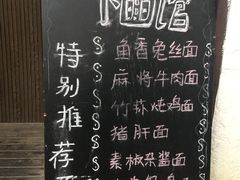 小面馆
特别推荐
鱼香兔丝面
麻将牛肉面
竹荪炖鸡面
猪肝面
素椒杂酱面